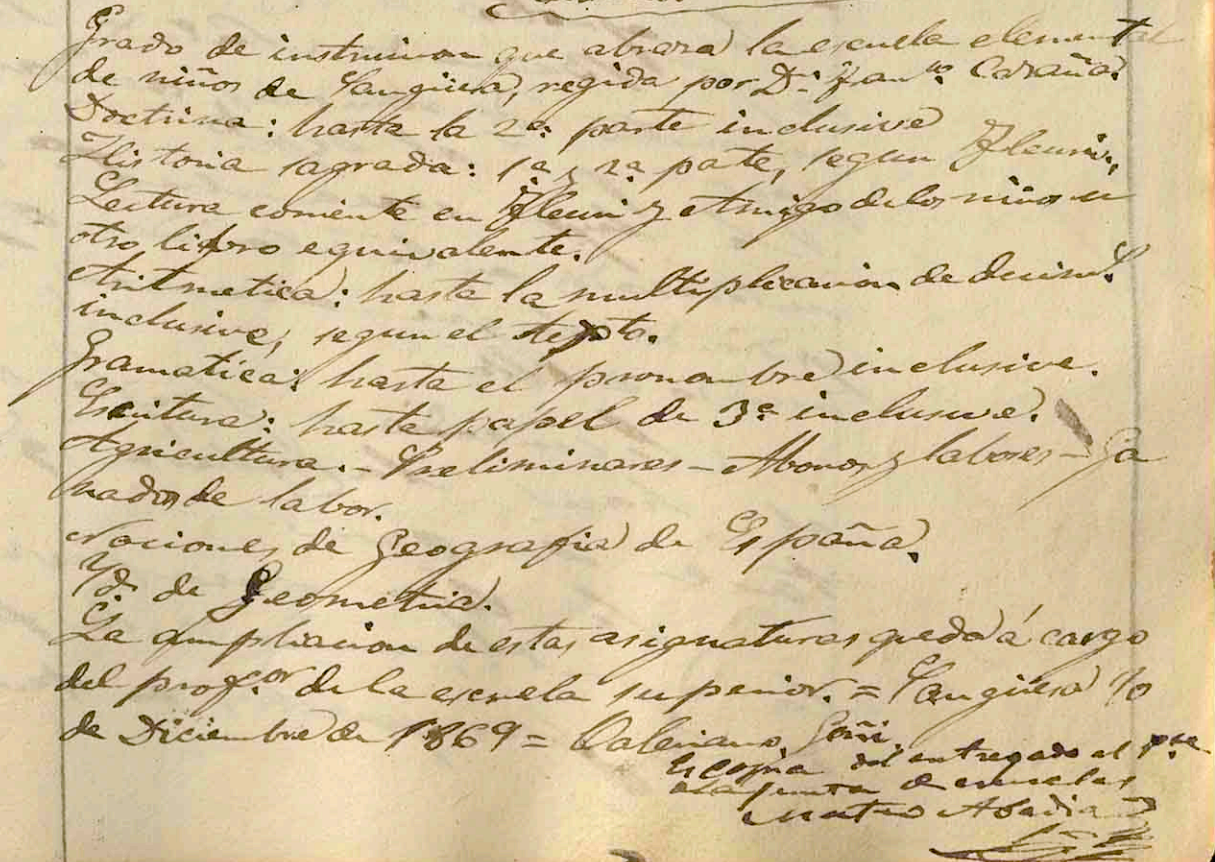 Grado de instruccion que abraza la escuela elemental
de niños de Sangüesa, regida por D. Fran.co
Doctrina: hasta la 2a. parte inclusive
Historia sagrada: 1a. y 2a. parte, segun Fleuri,
Lectura corriente en Fleuri y Amigo de los niños u
otro libro equivalente.
Aritmetica: hasta la multiplicacion de decim.s
inclusive, segun el testo.
Gramatica: hasta el pronombre inclusive.
Escritura: hasta papel de 3a. inclusive.
Agricultura. - Preliminares - Abonos y labores - Ga
nados de labor.
Nociones de Geografia de España.
Yd. de Geometria.
La ampliacion de estas asignaturas queda á cargo
del prof.or de la escuela superior. = Sangüesa
de Diciembre de 1869 = Valeriano Goñi
Es copia del entregado al p.te
de la junta de escuelas
Mateo Abadia